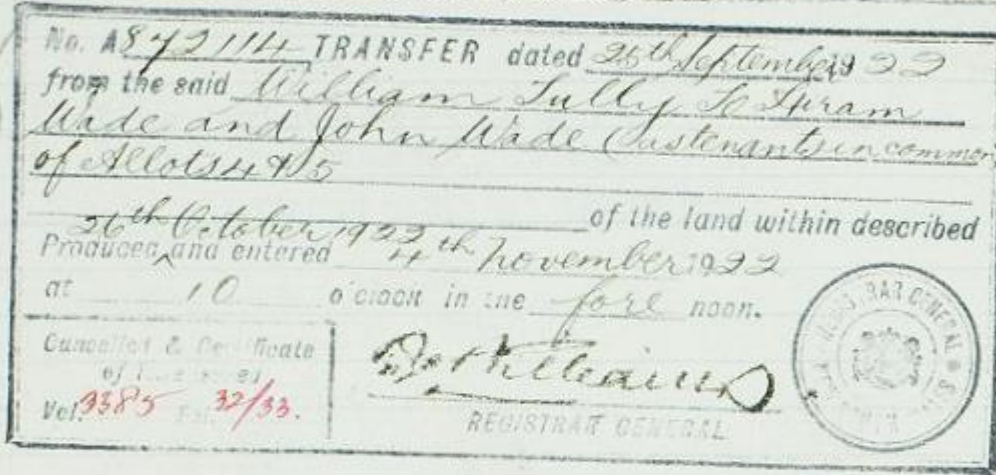 No. A872114 TRANSFER dated 26th September 1922
from the said William Tully to Hiram
Wade and John Wade (as tenants in common)
of Allots 4 & 5
of the land within described
26th October 1922
Produced and entered 4th November 1922
at 10 o'clock in the fore noon.
Cancelled & Certificate
Vol. 3385 Fol. 32/33.
REGISTRAR GENERAL
REGISTRAR GENERAL